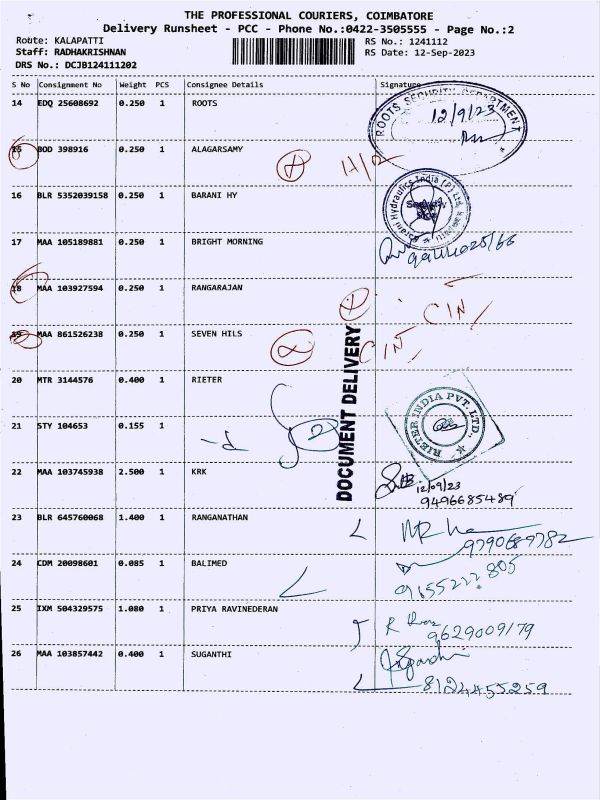 THE PROFESSIONAL COURIERS, COIMBATORE
Delivery Runsheet - PCC - Phone No.:0422-3505555 - Page No.:2
Route: KALAPATTI RS No.: 1241112
Staff: RADHAKRISHNAN RS Date: 12-Sep-2023
DRS No.: DCJB124111202
S No Consignment No Weight PCS Consignee Details Signature
14 EDQ 25608692 0.250 1 ROOTS
ROOTS SECURITY DEPARTMENT
12/9/23
15 BOD 398916 0.250 1 ALAGARSAMY
16 BLR 5352039158 0.250 1 BARANI HY
Barani Hydraulics India (P) Ltd.
17 MAA 105189881 0.250 1 BRIGHT MORNING
18 MAA 103927594 0.250 1 RANGARAJAN
CIN
19 MAA 861526238 0.250 1 SEVEN HILS
CIN
DOCUMENT DELIVERY
20 MTR 3144576 0.400 1 RIETER
RIETER INDIA PVT. LTD.
21 STY 104653 0.155 1
22 MAA 103745938 2.500 1 KRK
12/09/23
9496685489
23 BLR 645760068 1.400 1 RANGANATHAN
9790689782
24 CDM 20098601 0.085 1 BALIMED
9655222805
25 IXM 504329575 1.080 1 PRIYA RAVINEDERAN
9629009179
26 MAA 103857442 0.400 1 SUGANTHI
8124455259